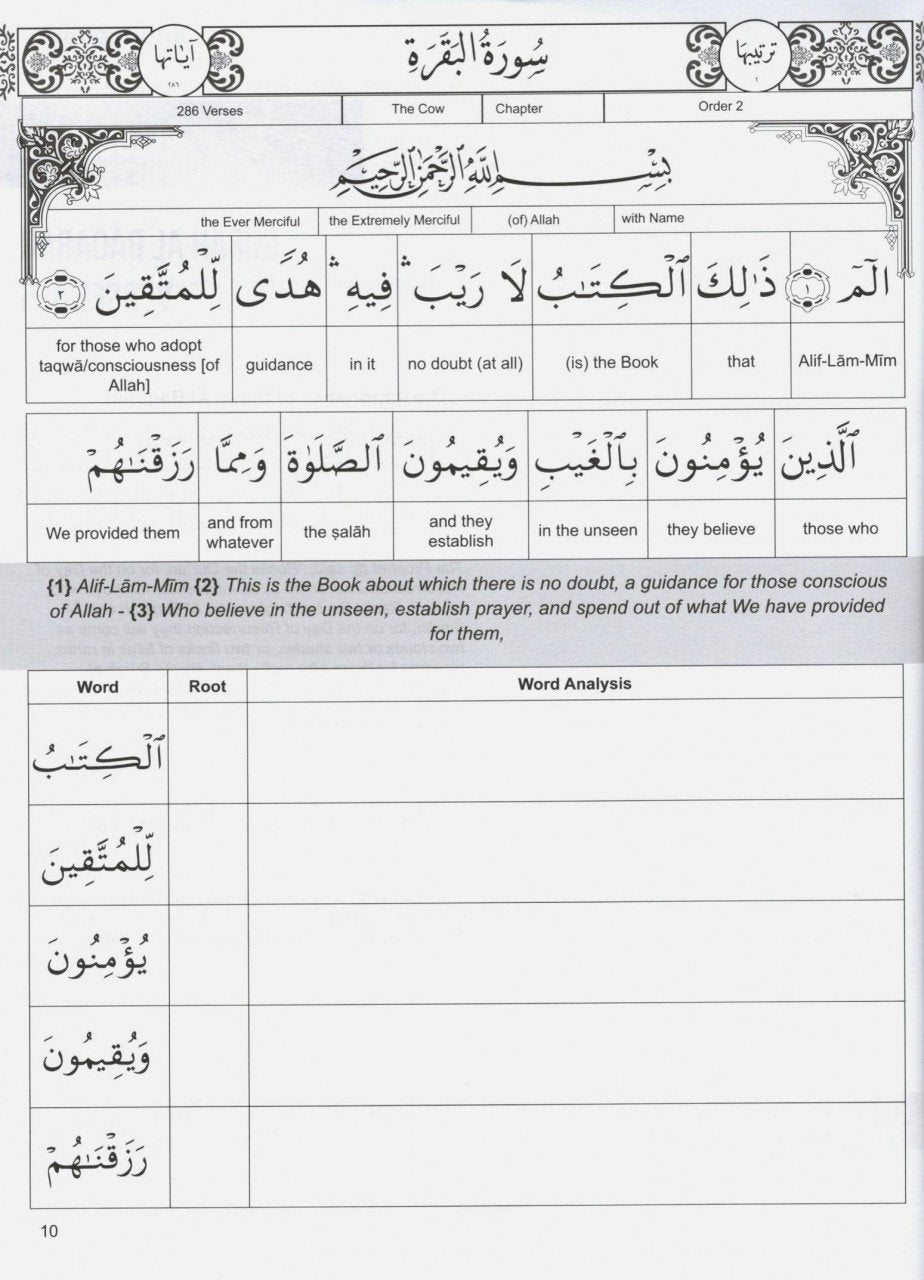 آياتها سُورَةُ البَقَرَةِ ترتيبها
٢٨٦ ٢
286 Verses The Cow Chapter Order 2
بِسْمِ اللَّهِ الرَّحْمَٰنِ الرَّحِيمِ
the Ever Merciful the Extremely Merciful (of) Allah with Name
الٓمٓ ١ ذَٰلِكَ ٱلْكِتَٰبُ لَا رَيْبَ ۛ فِيهِ ۛ هُدًى لِّلْمُتَّقِينَ ٢
for those who adopt taqwā/consciousness [of Allah] guidance in it no doubt (at all) (is) the Book that Alif-Lām-Mīm
ٱلَّذِينَ يُؤْمِنُونَ بِٱلْغَيْبِ وَيُقِيمُونَ ٱلصَّلَوٰةَ وَمِمَّا رَزَقْنَٰهُمْ
We provided them and from whatever the ṣalāh and they establish in the unseen they believe those who
{1} Alif-Lām-Mīm {2} This is the Book about which there is no doubt, a guidance for those conscious
of Allah - {3} Who believe in the unseen, establish prayer, and spend out of what We have provided
for them,
Word Root Word Analysis
ٱلْكِتَٰبُ
لِّلْمُتَّقِينَ
يُؤْمِنُونَ
وَيُقِيمُونَ
رَزَقْنَٰهُمْ
10